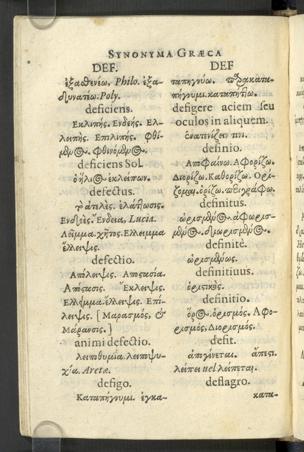 SYNONYMA GRÆCA
DEF.
ἐξασθενέω. Philo. ἐξα-
δυνατέω. Poly.
deficiens.
Ἐκλιπής. Ἐνδεής. Ἐλ-
λειπής. Ἐπιλιπής. Φθί-
μενος. Φθινόμενος.
deficiens Sol.
ὁ ἥλιος ἐκλείπων.
defectus.
τὸ ἀτελὲς. ἐλάττωσις.
Ἔνδεια, Lucia.
Λεῖμμα. χῆτος. Ἔλλειμμα
ἔλλειψις.
defectio.
Ἀπόλειψις. Ἀποστασία.
Ἀπόστασις. Ἔκλειψις.
Ἐλλημμα. ἔλλειψις. Ἐπί-
λειψις. [Μαρασμός, &
Μάρανσις.]
animi defectio.
λειποθυμία. λειποψυ-
χία. Aretæ.
defigo.
Καταπήγνυμι. ἐγκα-
DEF
ταπηγνύω. προσκατα-
πήγνυμι. καταπήττω.
defigere aciem seu
oculos in aliquem.
ἐνατενίζειν τινι.
definio.
Ἀποφαίνω. Ἀφορίζω.
Διορίζω. Καθορίζω. Ὁρί-
ζομαι. ὁρίζω. περιγράφω.
definitus.
ὡρισμένος. ἀφωρισ-
μένος. διωρισμένος.
definitè.
ὡρισμένως.
definitiuus.
ὁριστικός.
definitio.
ὅρος. ὁρισμός. Ἀφο-
ρισμός. Διορισμός.
defit.
ἀπογίνεται. ἄπεστι.
λείπει uel λείπεται.
deflagro.
κατα-